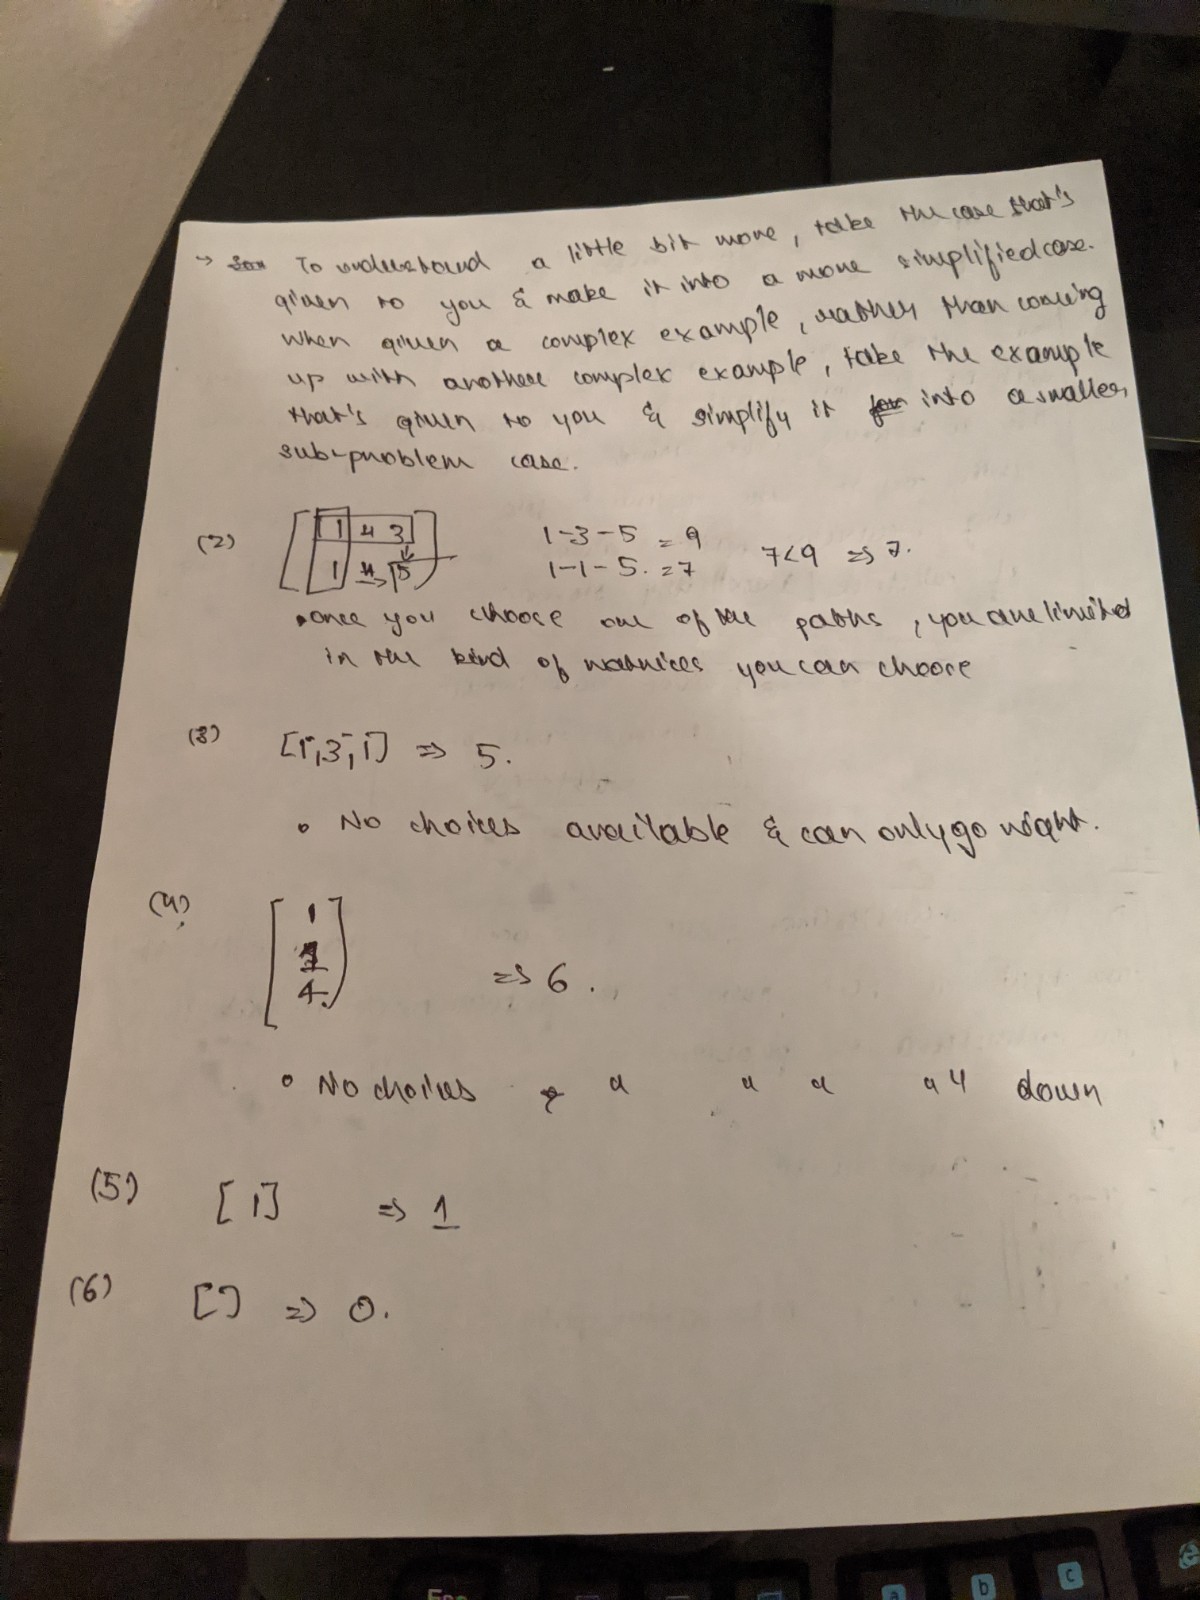 → To understand a little bit more, take the case that's
given to you & make it into a more simplified case.
when given a complex example, rather than coming
up with another complex example, take the example
that's given to you & simplify it into a smaller
sub-problem case.
(2) [1 4 3] 1-3-5 = 9
1 5 1-1-5. = 7 7<9 => 7.
• once you choose one of the paths, you are limited
in the kind of matrices you can choose
(3) [1,3,1] => 5.
• No choices available & can only go right.
(4) 1
4 => 6.
• No choices & " " " " down
(5) [1] => 1
(6) [] => 0.
Esc a b c